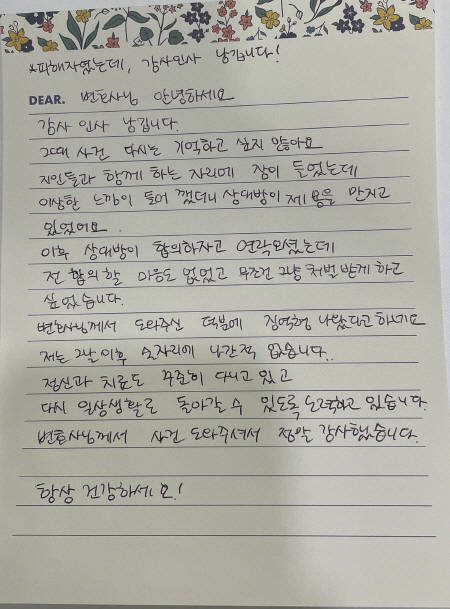 *피해자였는데, 감사인사 남깁니다!
DEAR. 변호사님 안녕하세요
감사 인사 남깁니다.
그때 사건 다시는 기억하고 싶지 않아요
지인들과 함께 하는 자리에 잠이 들었는데
이상한 느낌이 들어 깼더니 상대방이 제 몸을 만지고
있었어요.
이후 상대방이 합의하자고 연락오셨는데
전 합의할 마음도 없었고 무조건 그냥 처벌받게 하고
싶었습니다.
변호사님께서 도와주신 덕분에 징역형 나왔다고 하네요
저는 그날 이후 술자리에 나간적 없습니다.
정신과 치료도 꾸준히 다니고 있고
다시 일상생활로 돌아갈 수 있도록 노력하고 있습니다.
변호사님께서 사건 도와주셔서 정말 감사했습니다.
항상 건강하세요!